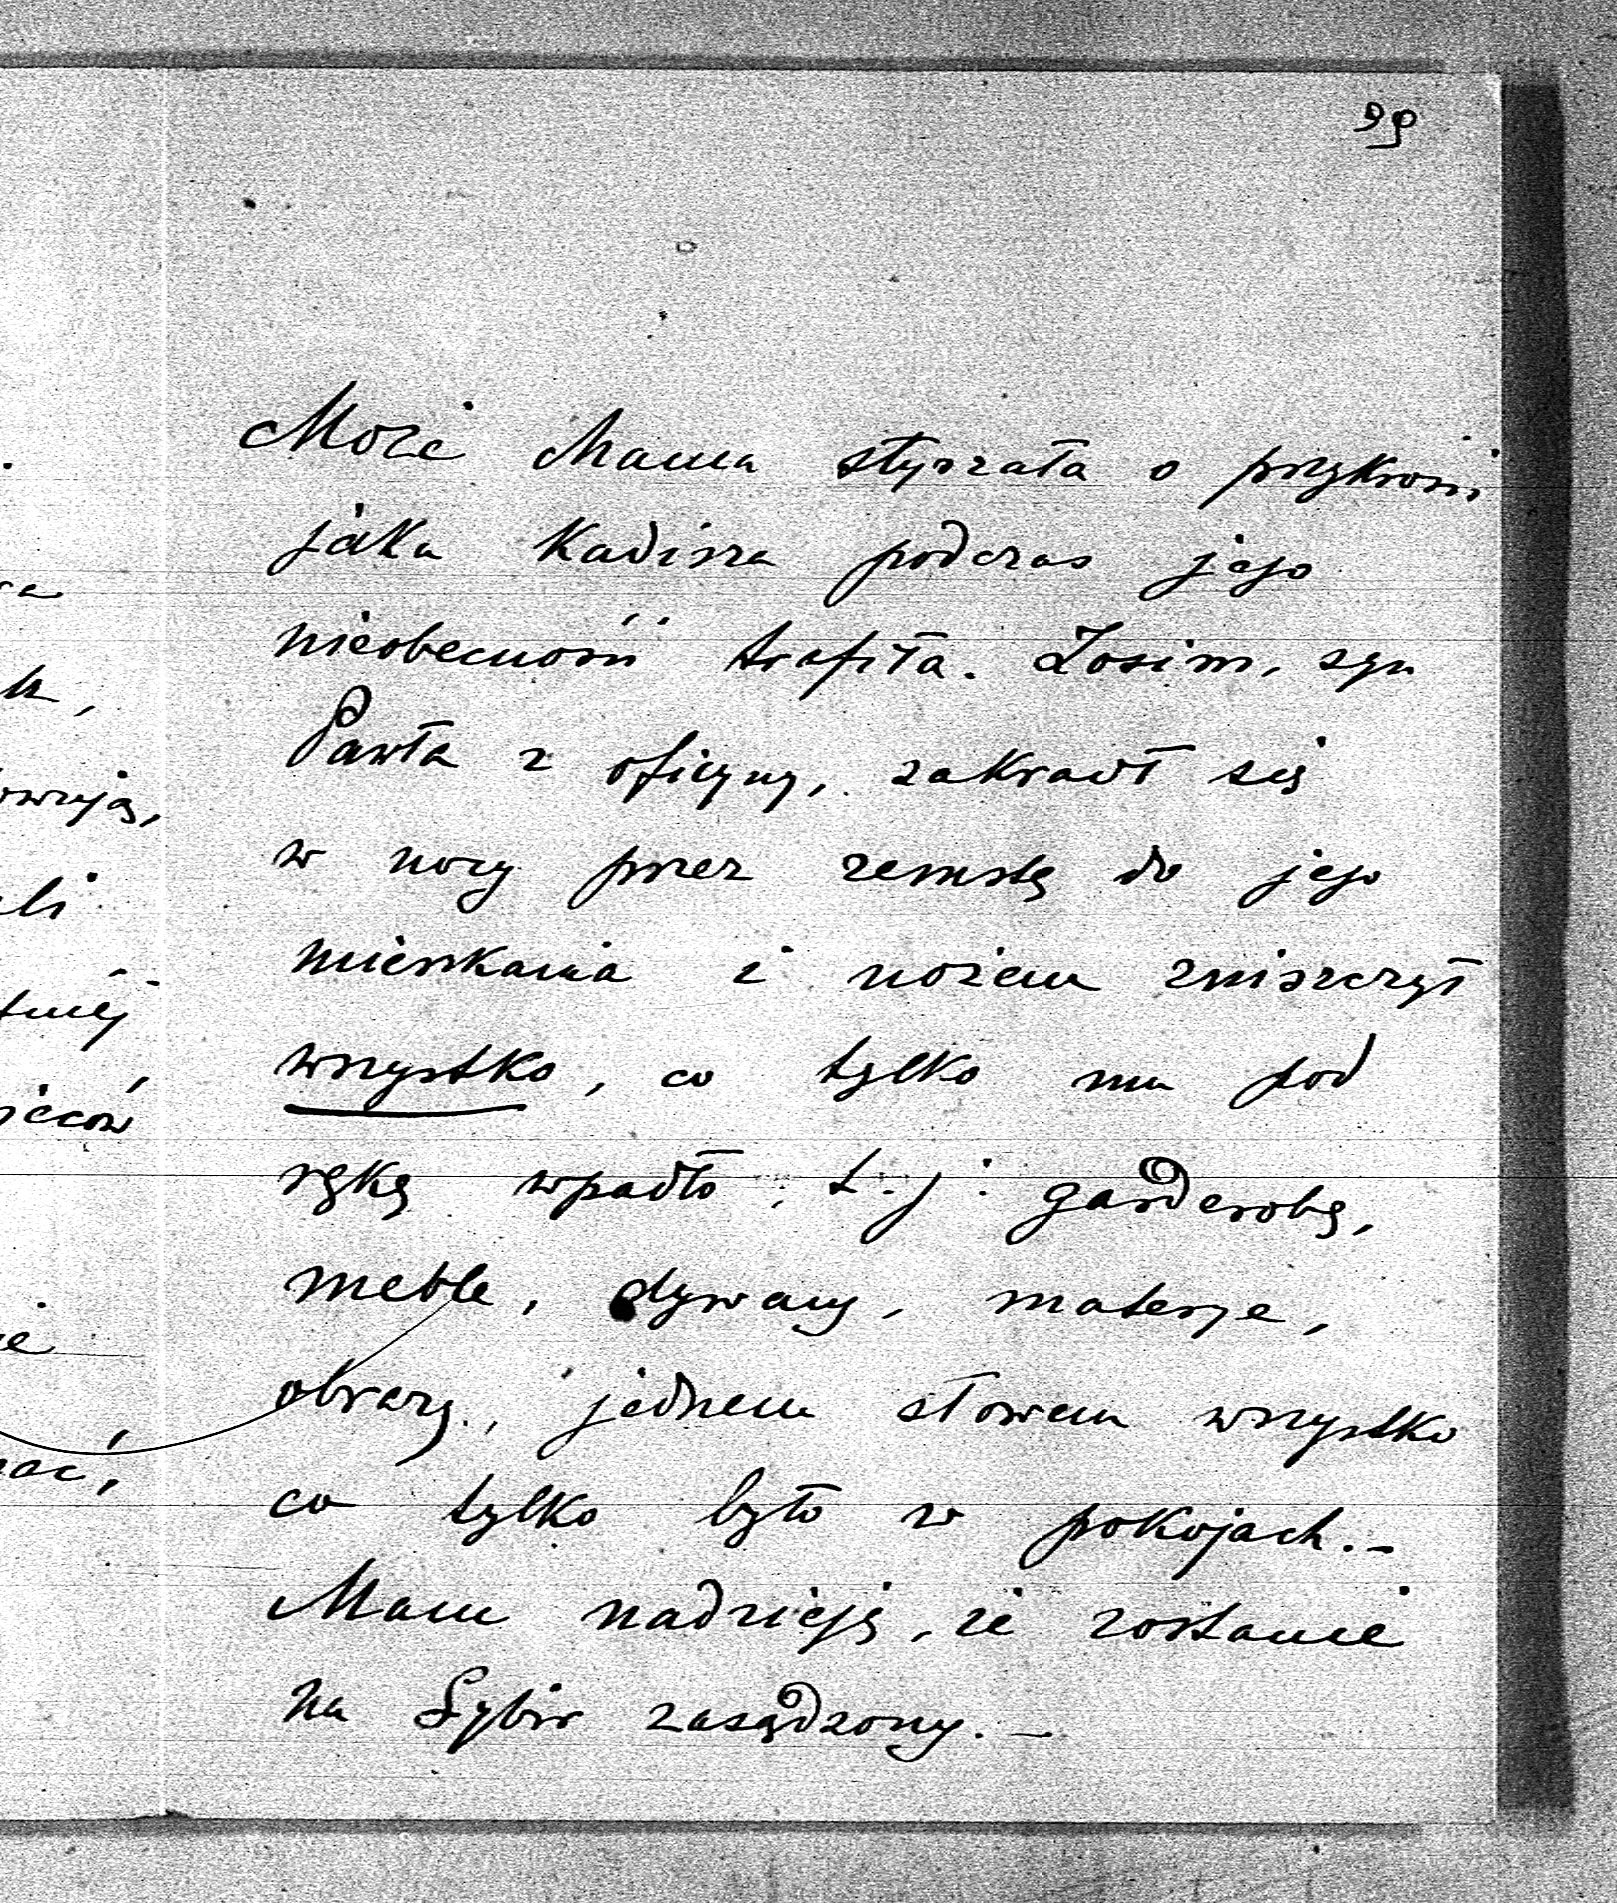 99
Może Mama słyszała o przykrości
jaka Kadisza podczas jego
nieobecności trafiła. Zosim, syn
Pawła z oficyny, zakradł się
w nocy przez zemstę do jego
mieszkania i nożem zniszczył
wszystko, co tylko mu pod
rękę wpadło, t.j. garderobę,
meble, dywany, materje,
obrazy, jednem słowem wszystko
co tylko było w pokojach.–
Mam nadzieję, że zostanie
na Sybir zasądzony.–